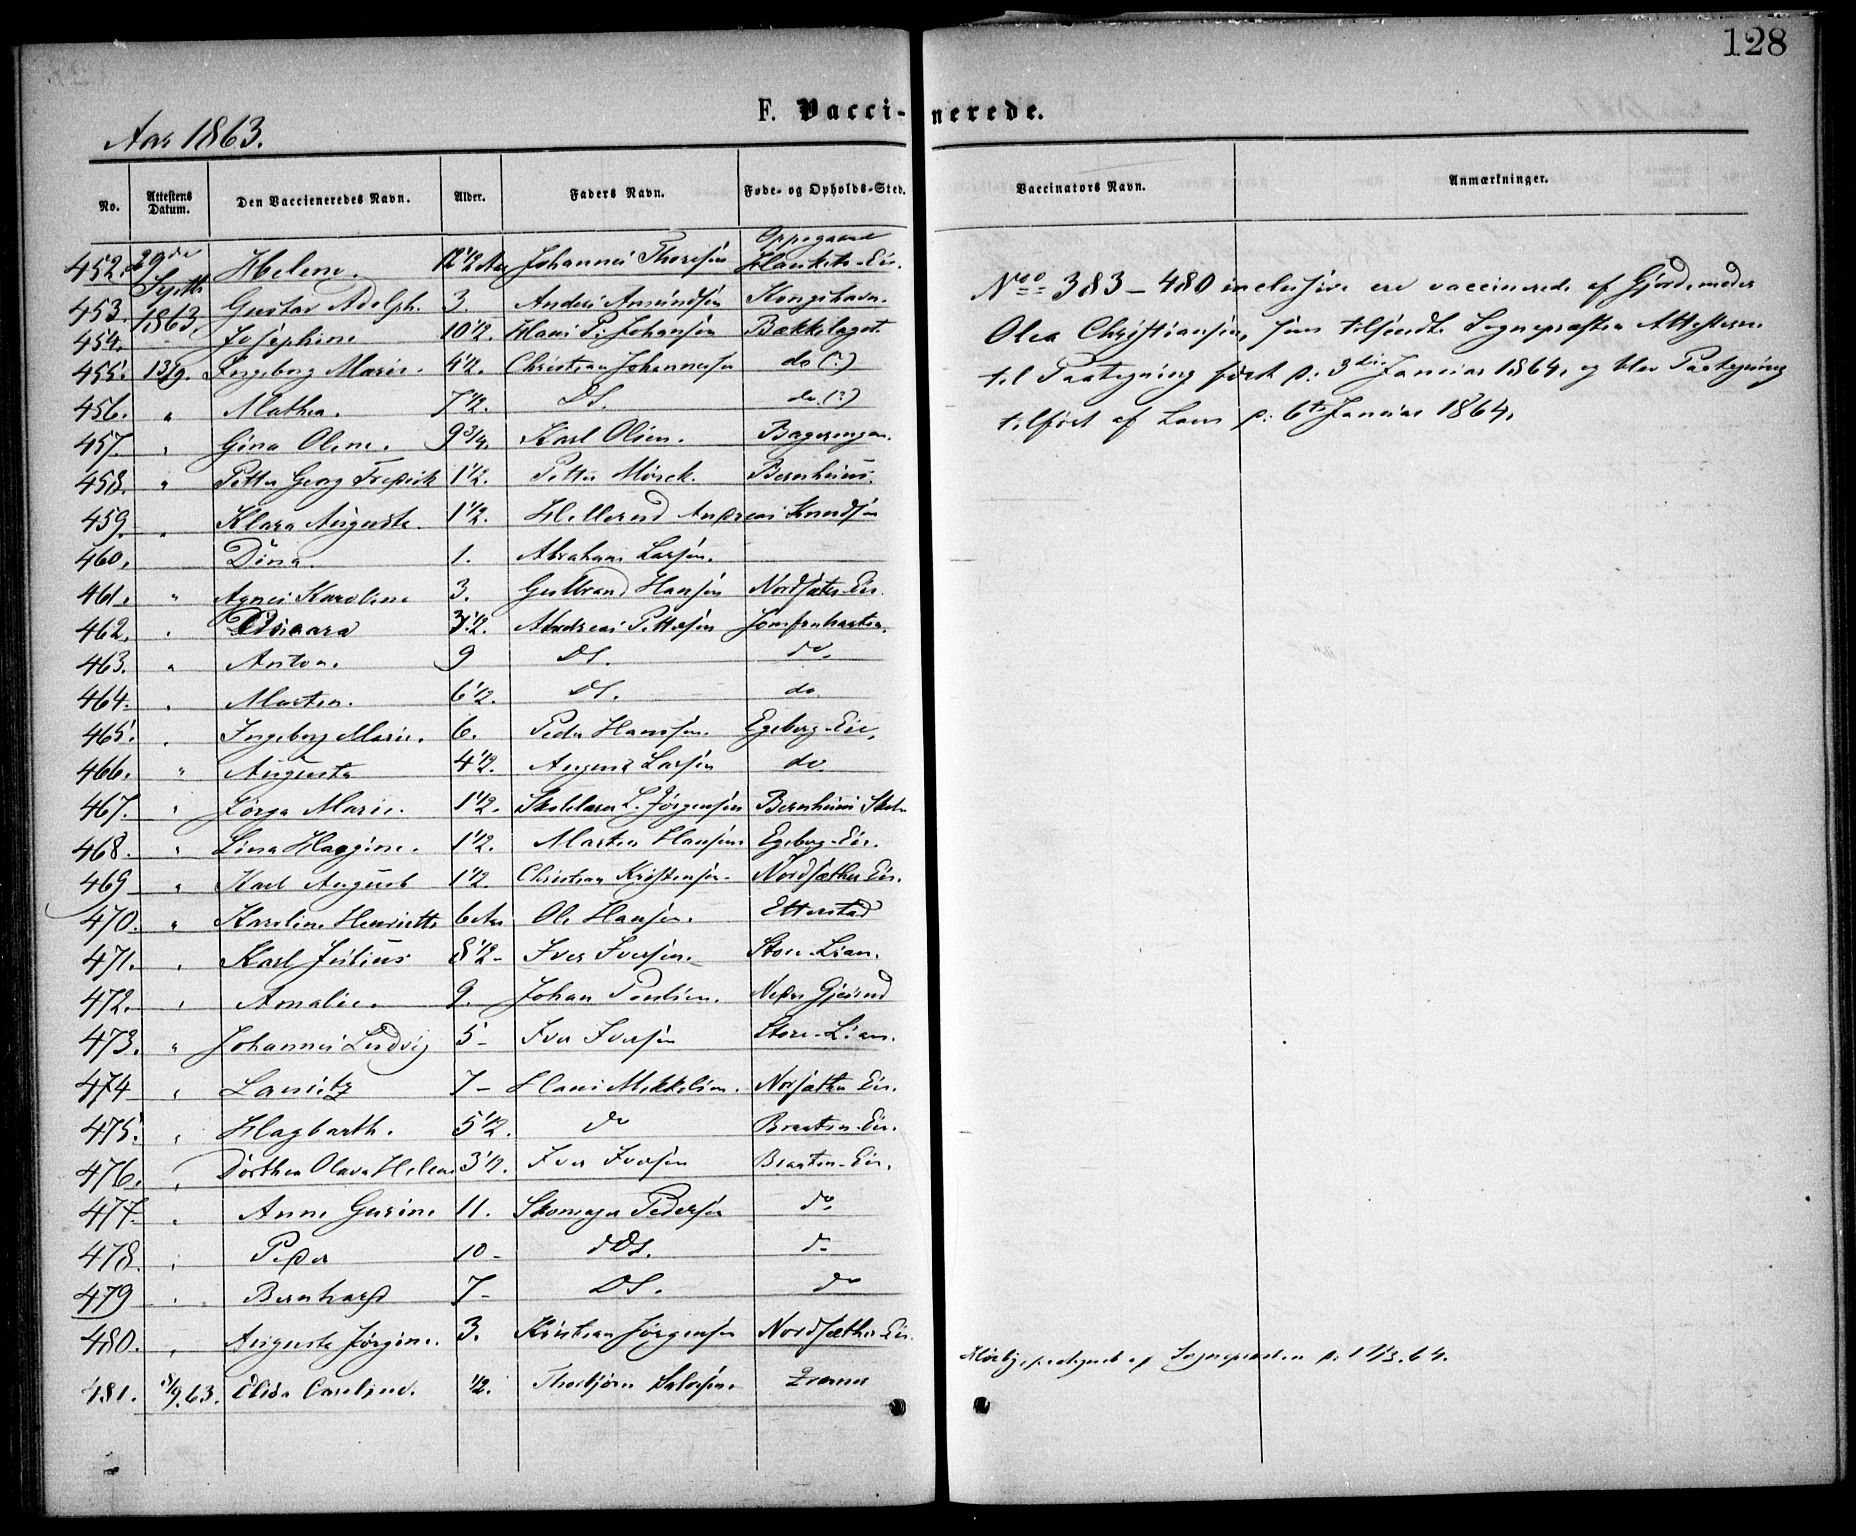 128
F. Vaccinerede.
Aar 1863.
No. Attestens Datum. Den Vaccieneredes Navn. Alder. Faders Navn. Føde- og Opholds-Sted. Vaccinators Navn. Anmærkninger.
Oppegaard
452. 29de Septb 1863. Helene. 12 1/2 Aar Johannes Thoresen Eie.
453. Gustav Adolph. 3. Anders Amundsen Kongshavn.
454. Josephine 10 1/2. Hans P. Johansen Bækkelaget.
455. 13/9. Ingeborg Marie. 4 1/2. Christian Johannesen do (?)
456. " Mathea. 7 1/2. DS. do (?)
457. " Gina Oline. 9 3/4. Karl Olsen.
458. " Petter Georg Fredrik 1 1/2. Petter Mörck. Bernhuus.
459. " Klara Auguste. 1 1/2. Andreas Knudsen
460. Dina. 1. Abraham Larsen.
461. " Agnes Karoline 3. Gulbrand Hansen Nordsæter Eie.
462. " 3 1/2. Andreas Pettersen Jomfrubraaten.
463. " Anton. 9 DS. do.
464. " Martin. 6 1/2. DS. do.
465. " Ingeborg Marie. 6. Peder Hansen. Egeberg-Eie.
466. " Augusta 4 1/2. August Larsen do.
467. " Jørga Marie. 1 1/2. Skolelærer L. Jørgensen Bernhuus Skole
468. " Lina Haggine. 1 1/2. Martin Hansen. Egeberg-Eie.
469 " Karl August 1 1/2. Christian Kristensen. Nordsæther Eie.
470. " Karoline Henriette 6 Aar Ole Hansen. Etterstad
471. " Karl Julius 8 1/2 - Iver Iversen. Store-Lian.
472. " Amalie. 9. Johan Poulsen. Nedre Gjersud
473. " Johannes Ludvig 5 - Iver Iversen Store-Lian.
474 " Lauritz 7 - Hans Mikkelsen. Norsæther Eie.
475. " Hagbarth. 5 1/2. do Braaten-Eie.
476. " Dorthea Olava Helene 3 1/2. Iver Iversen Braaten-Eie.
477. " Anne Gurine 11. Skomager Pedersen do.
478. " Peder 10 - DS. do
479 " Bernhard 7 - DS. do
480. " Augusta Jørgine. 3. Kristian Jørgensen Nordsæther-Eie.
481. /9. 63. Elida Caroline. 1/2. Thorbjørn Salvesen.
Noo 383 - 480 inclusive ere vaccinerede af Gjordemoder
Olea Christiansen, som tilsendte Sognepræsten Attesterne
til Paategning først p: 3die Januar 1864, og blev Paategning
tilført af Lous p: 6te Januar 1864.
Sognepræsten p: 11/3. 64.